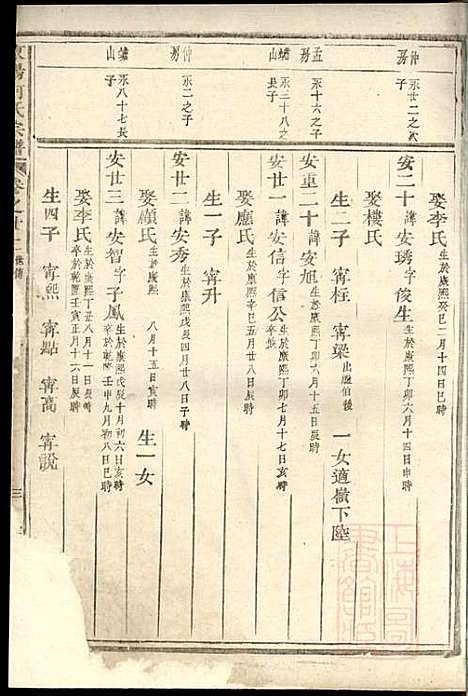 仲房
永廿二之次子
孟房
永十六之子
山蟠
永三十八之長子
仲房
永二之子
山蟠
永八十七長子
娶李氏 生於康熙癸巳二月十四日辰時
安二十 諱安琇 字俊生 生於康熙丁卯六月十四日申時
娶樓氏
生二子 甯枉 甯梁 出繼伯後 一女適嶺下陸
安重二十 諱安旭 生於康熙丁卯六月十五日辰時
安廿一 諱安信 字信公 生於康熙丁卯七月十七日亥時 卒於
娶應氏 生於康熙辛巳五月廿八日辰時
生一子 甯升
安廿二 諱安秀 生於康熙戊辰四月廿八日子時
娶顏氏 生於康熙 八月十五日亥時 生一女
安廿三 諱安智 字子鳳 生於康熙戊辰十月初六日亥時 卒於乾隆壬申九月初八日巳時
娶李氏 生於康熙丁丑八月十一日辰時 卒於乾隆壬寅正月十六日辰時
生四子 甯熙 甯點 甯高 甯說
何氏宗譜
卷之廿二
世傳
三